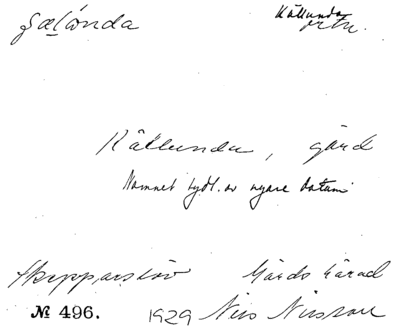 Källunda
ortn.
Källunda, gård
Namnet tydl. av nyare datum
Skepparslöv Gärds härad
№ 496. 1929 Nils Nilsson